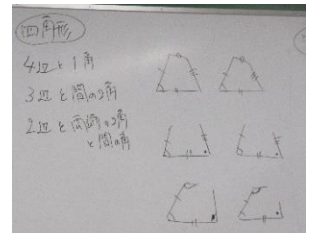 四角形
4辺と1角
3辺と間の2角
2辺と両端の2角
と間の角